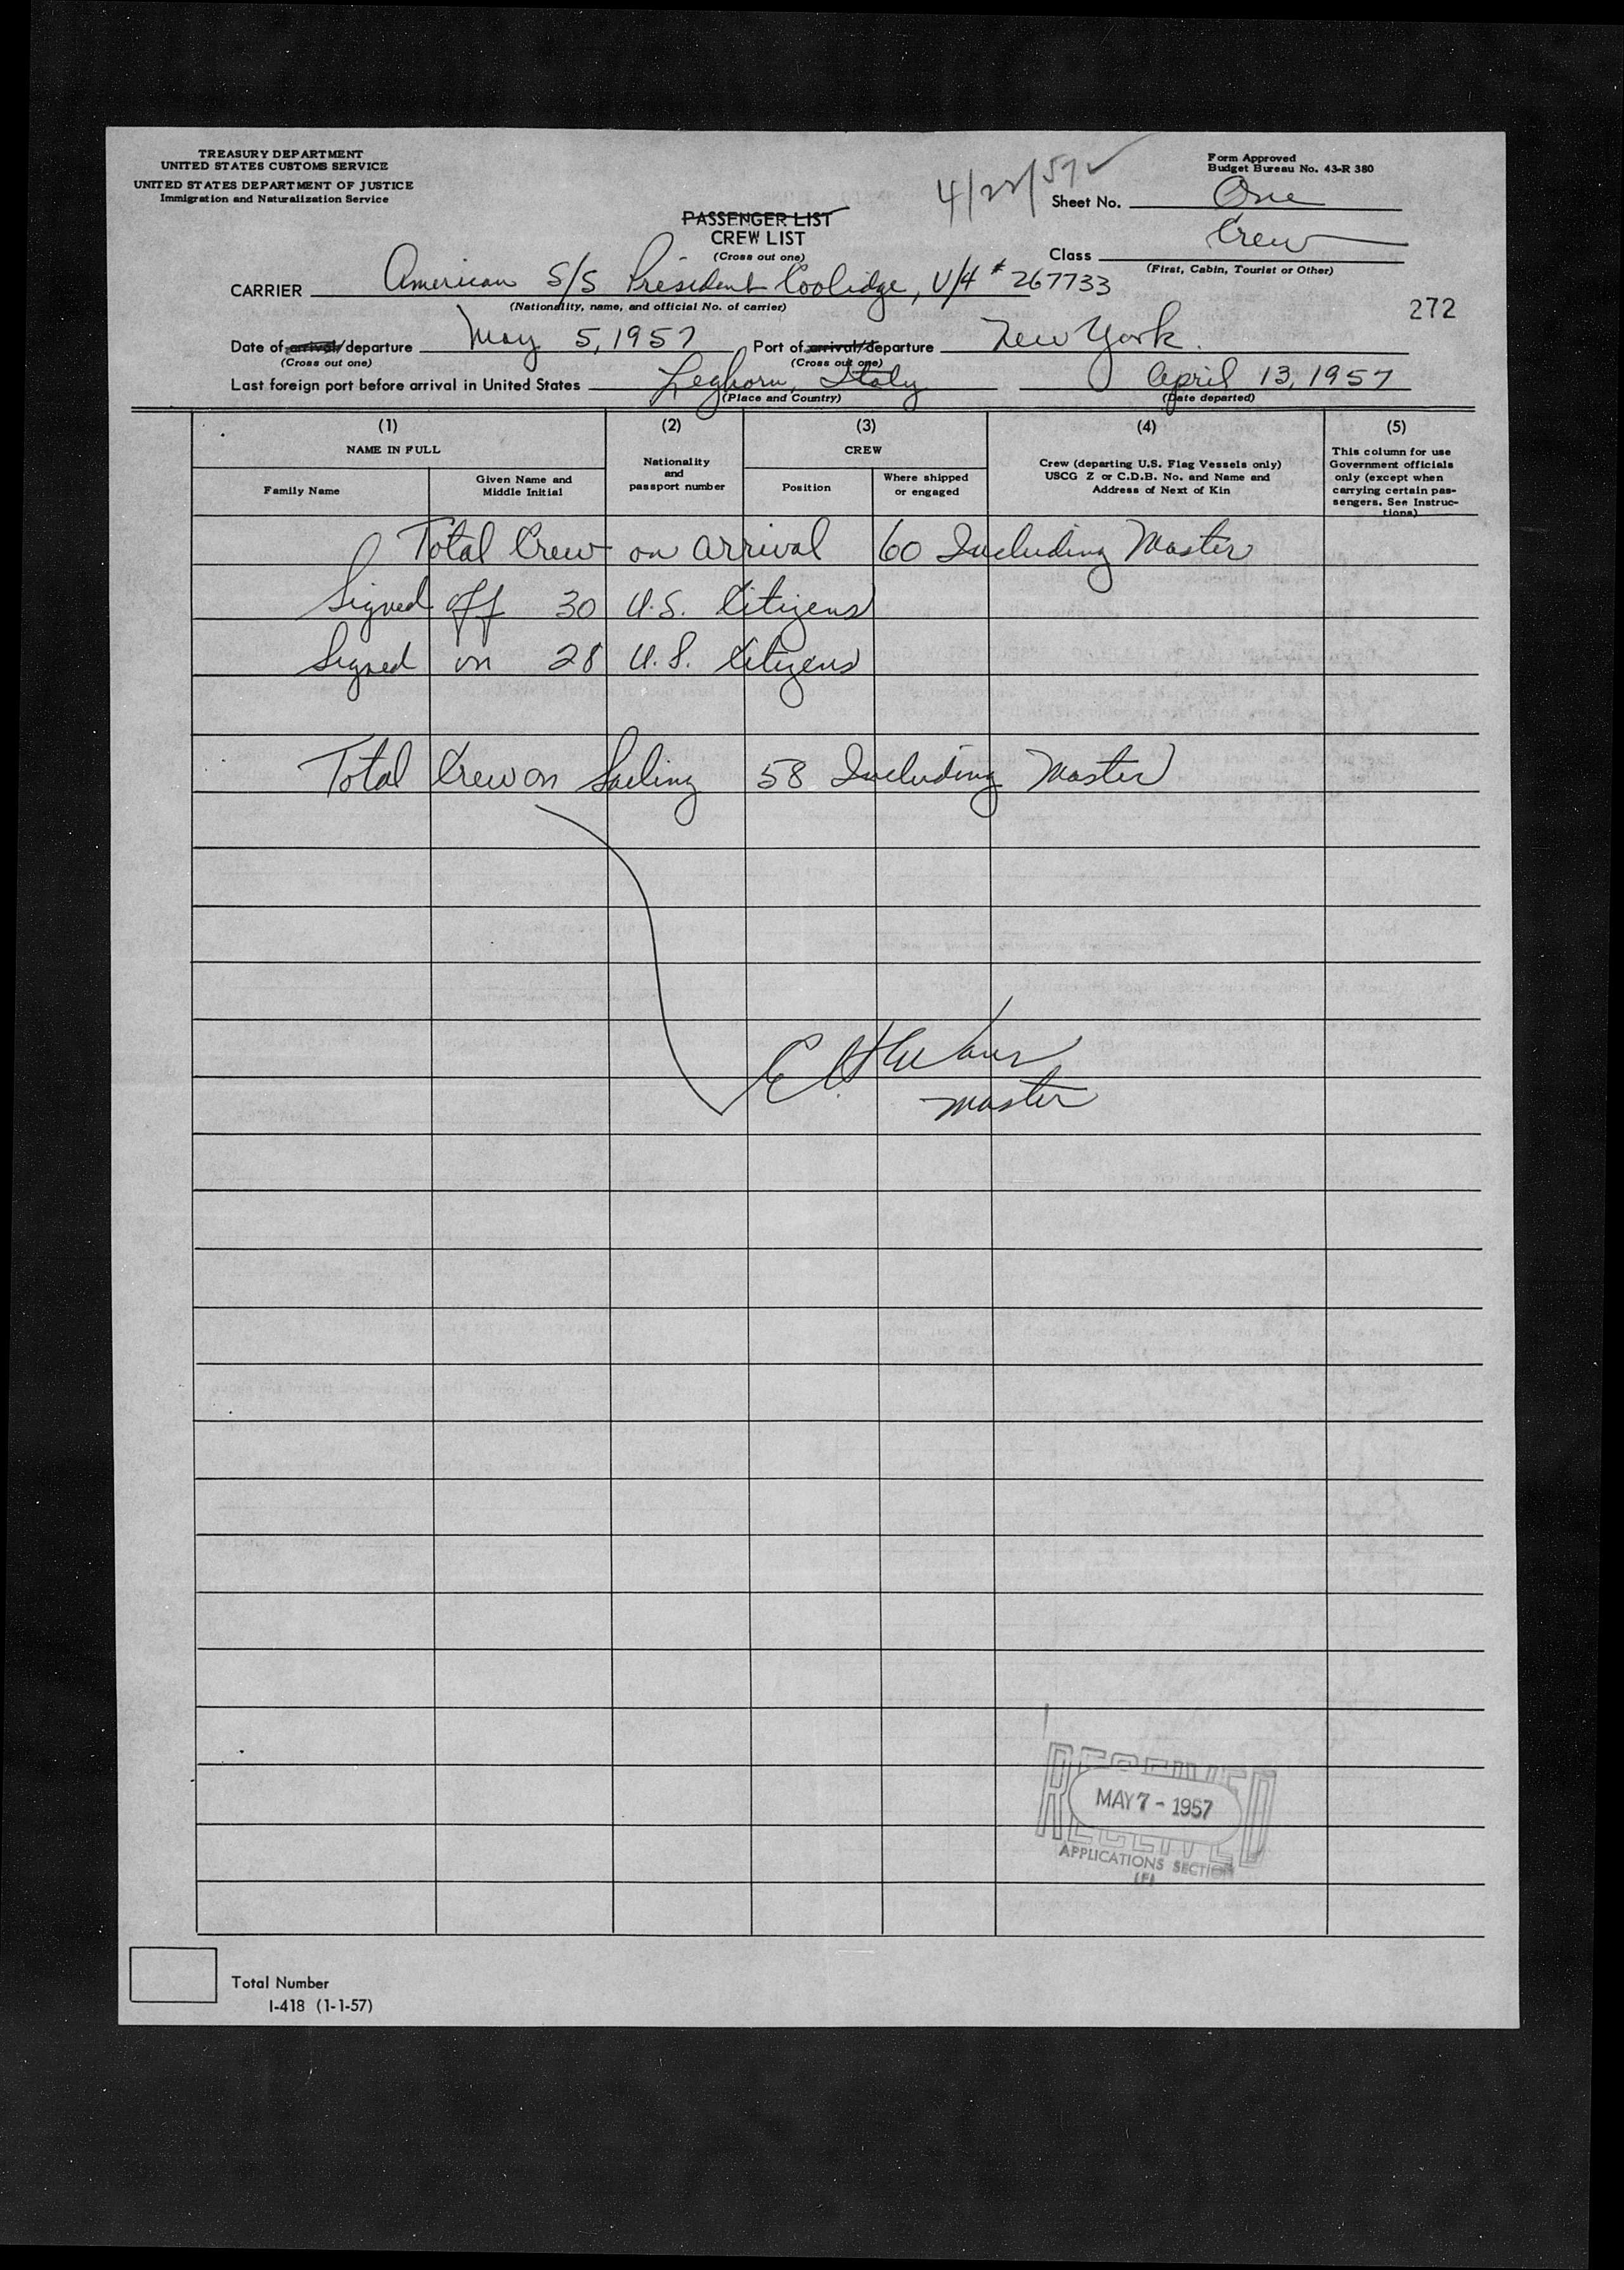 TREASURY DEPARTMENT
UNITED STATES CUSTOMS SERVICE
UNITED STATES DEPARTMENT OF JUSTICE
Immigration and Naturalization Service
Form Approved
Budget Bureau No. 43-R 380
4/22/57
Sheet No. One
PASSENGER LIST
CREW LIST
(Cross out one)
Class Crew
(First, Cabin, Tourist or Other)
CARRIER American S/S President Coolidge, V/4 # 267733
(Nationality, name, and official No. of carrier)
272
Date of arrival/departure May 5, 1957 Port of arrival/departure New York.
(Cross out one) (Cross out one)
Last foreign port before arrival in United States Leghorn, Italy April 13, 1957
(Place and Country) (Date departed)
(1) (2) (3) (4) (5)
NAME IN FULL
Family Name
Given Name and
Middle Initial
Nationality
and
passport number
CREW
Position
Where shipped
or engaged
Crew (departing U.S. Flag Vessels only)
USCG Z or C.D.B. No. and Name and
Address of Next of Kin
This column for use
Government officials
only (except when
carrying certain pas-
sengers. See Instruc-
tions)
Total Crew on arrival 60 Including Master
Signed off 30 U.S. Citizens
Signed on 28 U.S. Citizens
Total Crew on Sailing 58 Including Master
master
RECEIVED
MAY 7 - 1957
RECEIVED
APPLICATIONS SECTION
Total Number
I-418 (1-1-57)